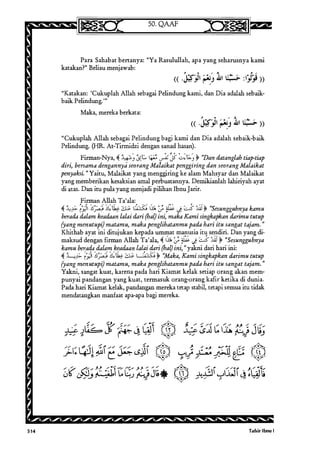 50. QAAF
Para Sahabat bertanya: "Ya Rasulullah, apa yang seharusnya kami
katakan?" Beliau menjawab:
(( .قُوْلُوْا: حَسْبُنَا اللهُ وَنِعْمَ الْوَكِيْلُ ))
"Katakan: 'Cukuplah Allah sebagai Pelindung kami, dan Dia adalah sebaik-
baik Pelindung.'"
Maka, mereka berkata:
(( .حَسْبُنَا اللهُ وَنِعْمَ الْوَكِيْلُ ))
"Cukuplah Allah sebagai Pelindung bagi kami dan Dia adalah sebaik-baik
Pelindung. (HR. At-Tirmidzi dengan sanad hasan).
Firman-Nya, ﴿ وَجَاءَتْ كُلُّ نَفْسٍ مَعَهَا سَائِقٌ وَشَهِيدٌ ﴾ "Dan datanglah tiap-tiap
diri, bersama dengannya seorang Malaikat penggiring dan seorang Malaikat
penyaksi." Yaitu, Malaikat yang menggiring ke alam Mahsyar dan Malaikat
yang memberikan kesaksian amal perbuatannya. Demikianlah lahiriyah ayat
di atas. Dan itu pula yang menjadi pilihan Ibnu Jarir.
Firman Allah Ta'ala:
﴿ لَقَدْ كُنْتَ فِي غَفْلَةٍ مِنْ هَذَا فَكَشَفْنَا عَنْكَ غِطَاءَكَ فَبَصَرُكَ الْيَوْمَ حَدِيدٌ ﴾ "Sesungguhnya kamu
berada dalam keadaan lalai dari (hal) ini, maka Kami singkapkan darimu tutup
(yang menutupi) matamu, maka penglihatanmu pada hari itu sangat tajam."
Khithab ayat ini ditujukan kepada ummat manusia itu sendiri. Dan yang di-
maksud dengan firman Allah Ta'ala, ﴿ لَقَدْ كُنْتَ فِي غَفْلَةٍ مِنْ هَذَا ﴾ "Sesungguhnya
kamu berada dalam keadaan lalai dari (hal) ini," yakni dari hari ini:
﴿ فَكَشَفْنَا عَنْكَ غِطَاءَكَ فَبَصَرُكَ الْيَوْمَ حَدِيدٌ ﴾ "Maka, Kami singkapkan darimu tutup
(yang menutupi) matamu, maka penglihatanmu pada hari itu sangat tajam."
Yakni, sangat kuat, karena pada hari Kiamat kelak setiap orang akan mem-
punyai pandangan yang kuat, termasuk orang-orang kafir ketika di dunia.
Pada hari Kiamat kelak, pandangan mereka tetap stabil, tetapi semua itu tidak
mendatangkan manfaat apa-apa bagi mereka.
وَقَالَ قَرِينُهُ هَذَا مَا لَدَيَّ عَتِيدٌ ﴿٢٣﴾ أَلْقِيَا فِي جَهَنَّمَ كُلَّ كَفَّارٍ عَنِيدٍ
﴿٢٤﴾ مَنَّاعٍ لِلْخَيْرِ مُعْتَدٍ مُرِيبٍ ﴿٢٥﴾ الَّذِي جَعَلَ مَعَ اللَّهِ إِلَهًا آخَرَ فَأَلْقِيَاهُ
فِي الْعَذَابِ الشَّدِيدِ ﴿٢٦﴾ قَالَ قَرِينُهُ رَبَّنَا مَا أَطْغَيْتُهُ وَلَكِنْ كَانَ
514
Tafsir Ibnu